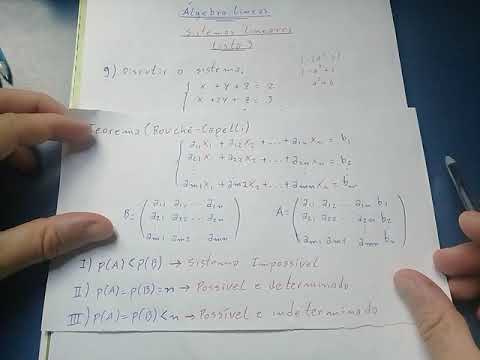 Álgebra Linear
Sistemas lineares
Lista 9
9) Discutir o sistema:
x + y + z = 2
x + 2y + z = 3
Teorema (Rouché-Capelli)
a11x1 + a12x2 + ... + a1nxn = b1
a21x1 + a22x2 + ... + a2nxn = b2
am1x1 + am2x2 + ... + amnxn = bm
B = ( a11 a12 ... a1n A = ( a11 a12 ... a1n b1
a21 a22 ... a2n a21 a22 ... a2n b2
am1 am2 amn ) am1 am2 amn bm )
I) p(A) < p(B) → Sistema Impossível
II) p(A) = p(B) = n → Possível e determinado
III) p(A) = p(B) < n → Possível e indeterminado